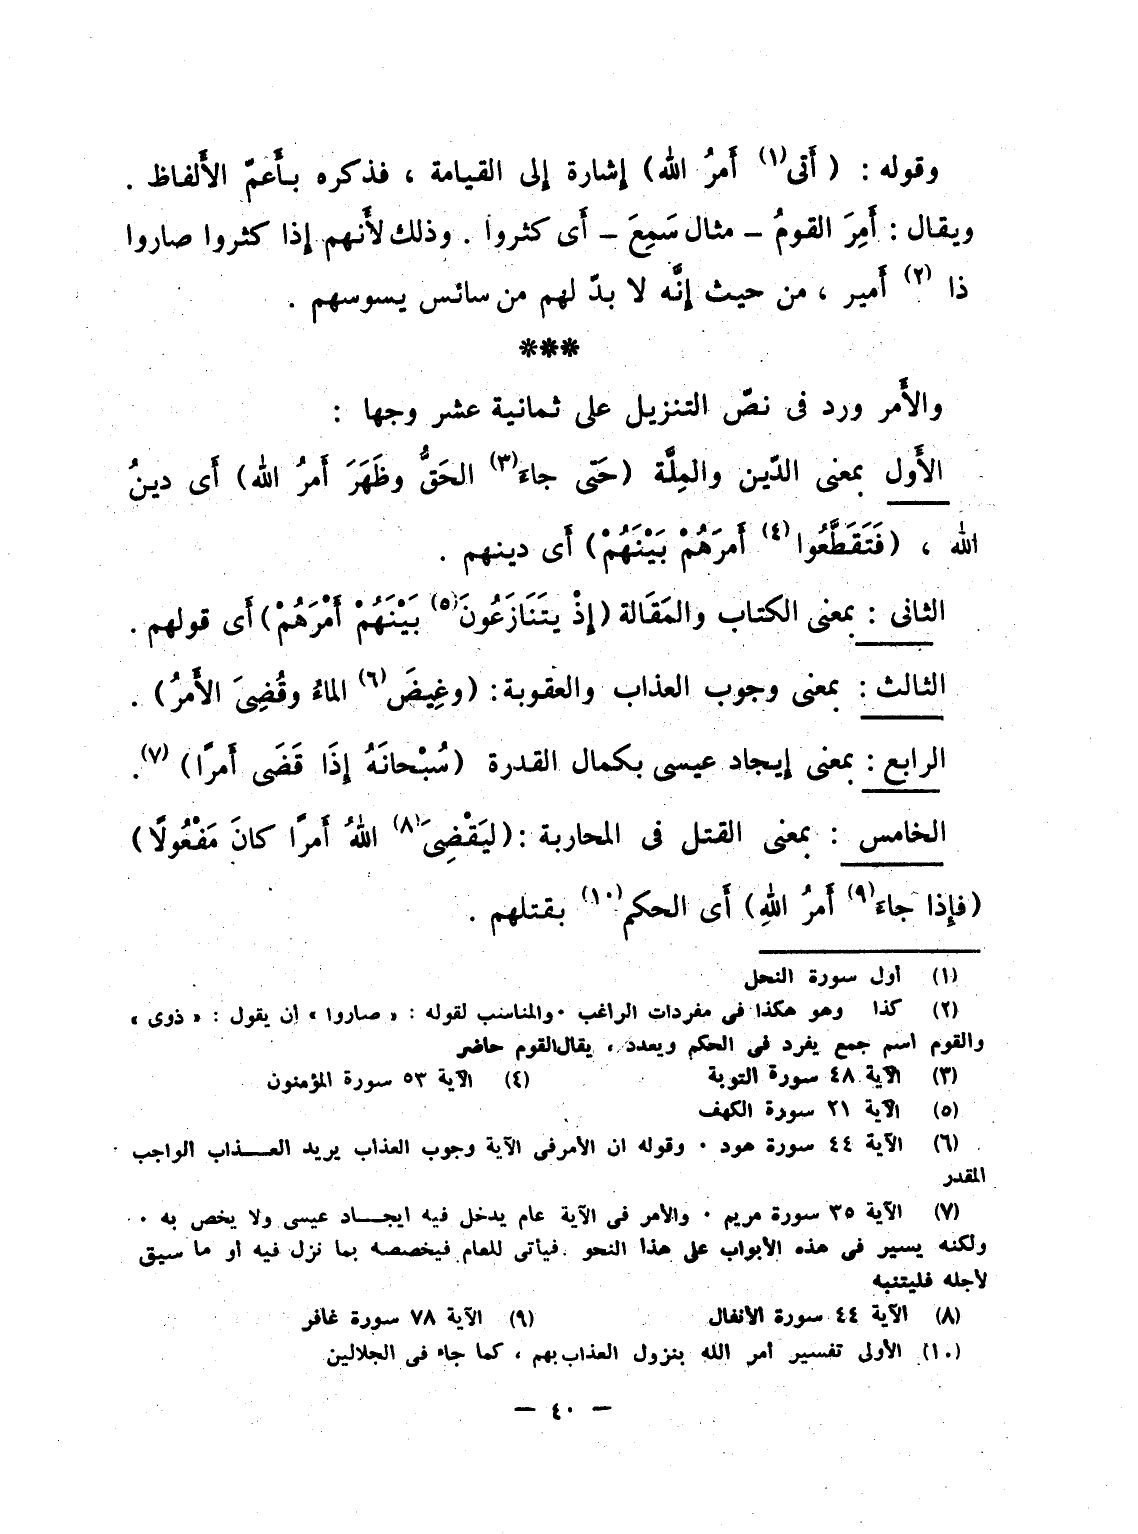 وقوله : ( أَتى(١) أَمرُ الله) إشارة إلى القيامة ، فذكره بأَعمّ الأَلفاظ .
ويقال : أَمِرَ القومُ – مثال سَمِعَ – أَى كثروا . وذلك لأَنهم إذا كثروا صاروا
ذا (٢) أَمير ، من حيث إنَّه لا بدّ لهم من سائس يسوسهم .
***
والأَمر ورد فى نصّ التنزيل على ثمانية عشر وجها :
الأَول بمعنى الدّين والمِلَّة (حَتّى جاءَ(٣) الحَقُّ وظَهَرَ أَمرُ الله) أَى دينُ
الله ، (فَتَقَطَّعُوا(٤) أَمرَهُمْ بَيْنَهُمْ) أَى دينهم .
الثانى : بمعنى الكتاب والمَقَالة (إذْ يتَنَازَعُونَ(٥) بَيْنَهُمْ أَمْرَهُمْ) أَى قولهم .
الثالث : بمعنى وجوب العذاب والعقوبة : (وغِيضَ(٦) الماءُ وقُضِىَ الأَمرُ) .
الرابع : بمعنى إيجاد عيسى بكمال القدرة (سُبْحانَهُ إذَا قَضَى أَمرًا) (٧).
الخامس : بمعنى القتل فى المحاربة : (ليَقْضِىَ(٨) اللهُ أَمرًا كانَ مَفْعُولًا)
(فإِذا جاءَ(٩) أَمرُ اللهِ) أَى الحكم(١٠) بقتلهم .
(١) أول سورة النحل
(٢) كذا وهو هكذا فى مفردات الراغب . والمناسب لقوله : « صاروا » أن يقول : « ذوى »
والقوم اسم جمع يفرد فى الحكم ويعدد ، يقال القوم حاضر
(٣) الآية ٤٨ سورة التوبة (٤) الآية ٥٣ سورة المؤمنون
(٥) الآية ٢١ سورة الكهف
(٦) الآية ٤٤ سورة هود . وقوله ان الأمر فى الآية وجوب العذاب يريد العـــذاب الواجب
المقدر
(٧) الآية ٣٥ سورة مريم . والأمر فى الآية عام يدخل فيه ايجـــاد عيسى ولا يخص به .
ولكنه يسير فى هذه الأبواب على هذا النحو . فيأتى للعام فيخصصه بما نزل فيه أو ما سيق
لأجله فليتنبه
(٨) الآية ٤٤ سورة الأنفال (٩) الآية ٧٨ سورة غافر
(١٠) الأولى تفسير أمر الله بنزول العذاب بهم ، كما جاء فى الجلالين
— ٤٠ —